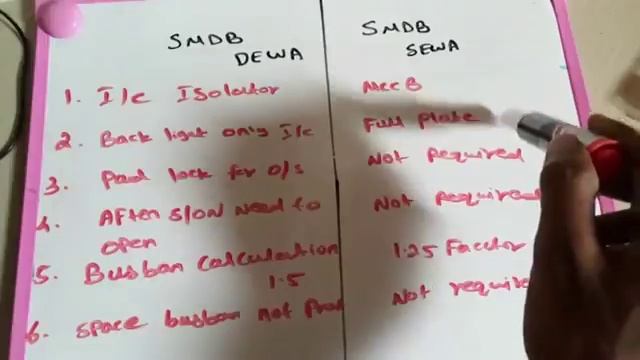 SMDB
DEWA
SMDB
SEWA
1. I/c Isolator
MCCB
2. Back light only I/c
Full plate
3. Pad lock for o/s
Not Required
4. After s/on need to
open
Not required
5. Busbar calculation
1.5
1.25 Factor
6. Space busbar not Prov
Not require